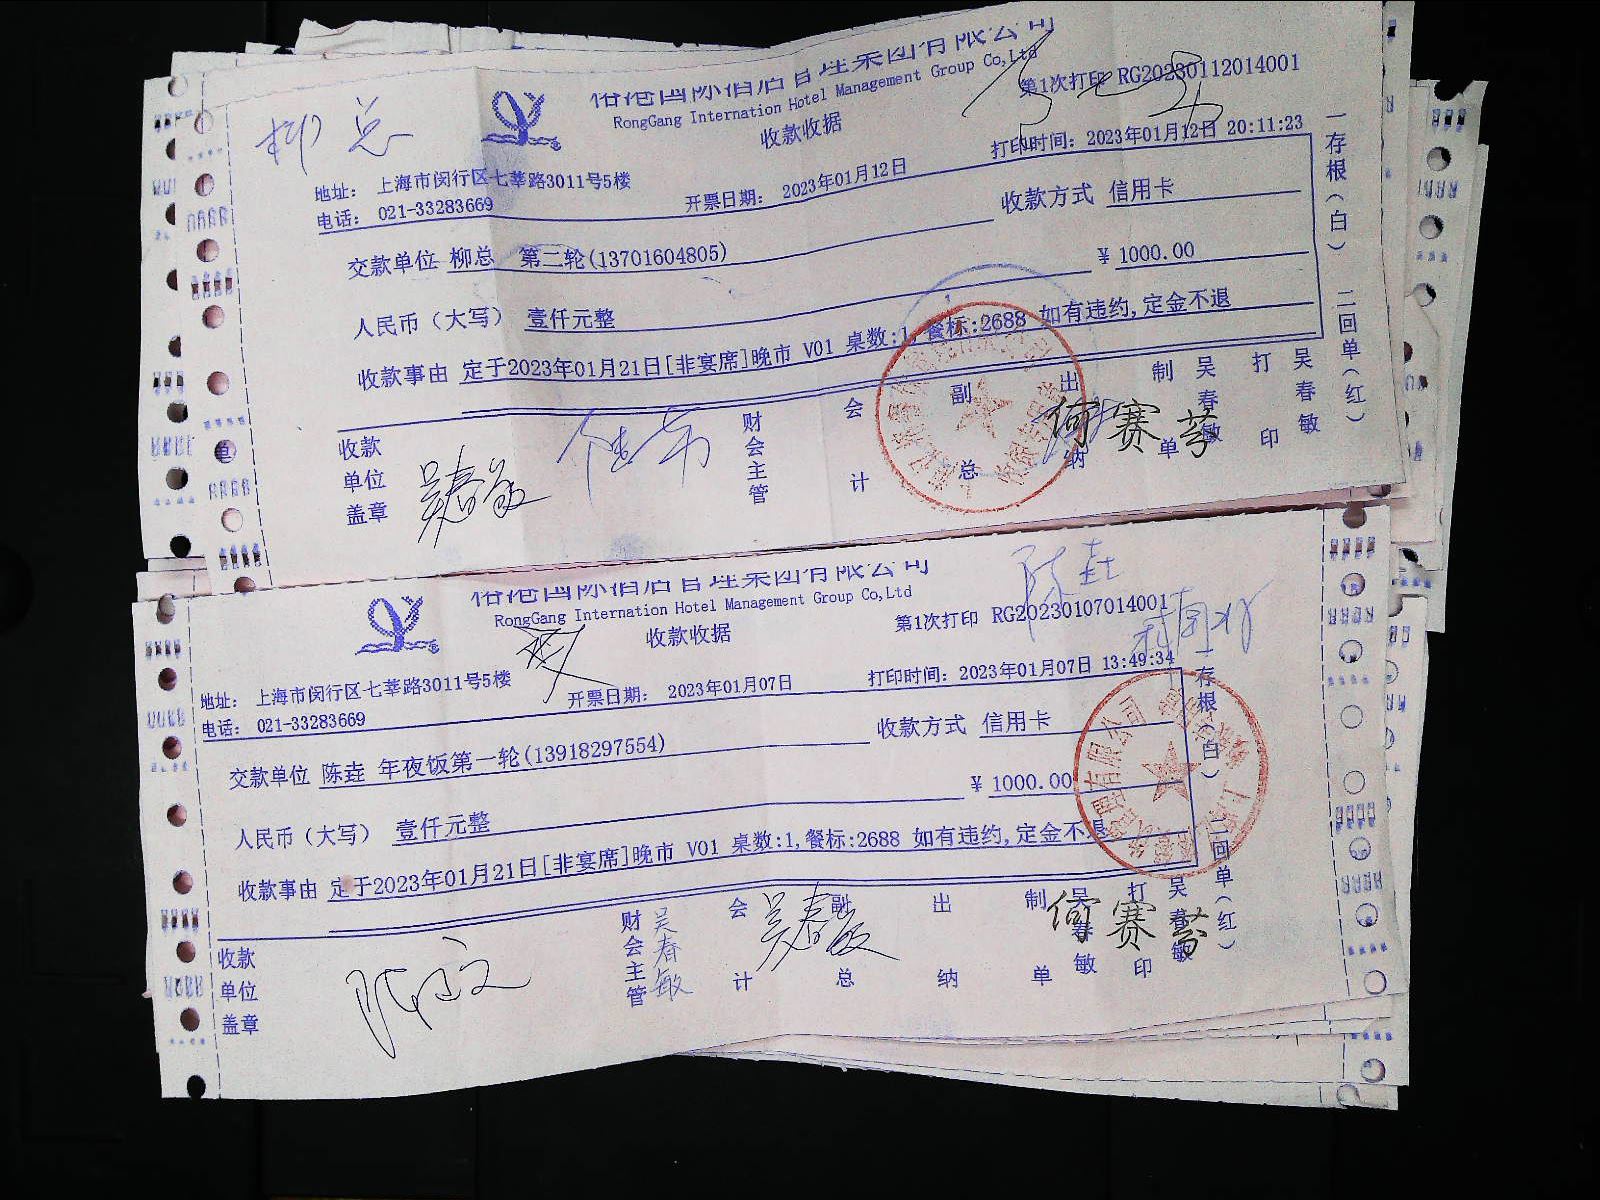 柳总
RongGang Internation Hotel Management Group Co,Ltd
收款收据
第1次打印 RG20230112014001
地址： 上海市闵行区七莘路3011号5楼
电话： 021-33283669
开票日期： 2023年01月12日
打印时间： 2023年01月12日 20:11:23
收款方式 信用卡
交款单位 柳总 第二轮(13701604805)
¥ 1000.00
人民币（大写） 壹仟元整
收款事由 定于2023年01月21日[非宴席]晚市 V01 桌数:1,餐标:2688 如有违约,定金不退
一存根（白） 二回单（红）
收款单位盖章
吴春敏
财会主管
会计
副总
出纳
何赛芬
制单
吴春敏
打印
吴春敏
RongGang Internation Hotel Management Group Co,Ltd
收款收据
第1次打印 RG20230107014001
陈垚
地址： 上海市闵行区七莘路3011号5楼
电话： 021-33283669
开票日期： 2023年01月07日
打印时间： 2023年01月07日 13:49:34
收款方式 信用卡
交款单位 陈垚 年夜饭第一轮(13918297554)
¥ 1000.00
人民币（大写） 壹仟元整
收款事由 定于2023年01月21日[非宴席]晚市 V01 桌数:1,餐标:2688 如有违约,定金不退
存根（白） 二回单（红）
收款单位盖章
财会主管
吴春敏
会计
吴春敏
副总
出纳
制单
何赛芬
吴春敏
打印
吴春敏